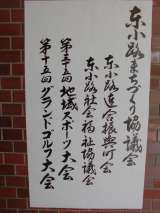 東小路まちづくり協議会
東小路連合振興町会
東小路社会福祉協議会
第三十五回 地域スポーツ大会
第十五回 グランドゴルフ大会